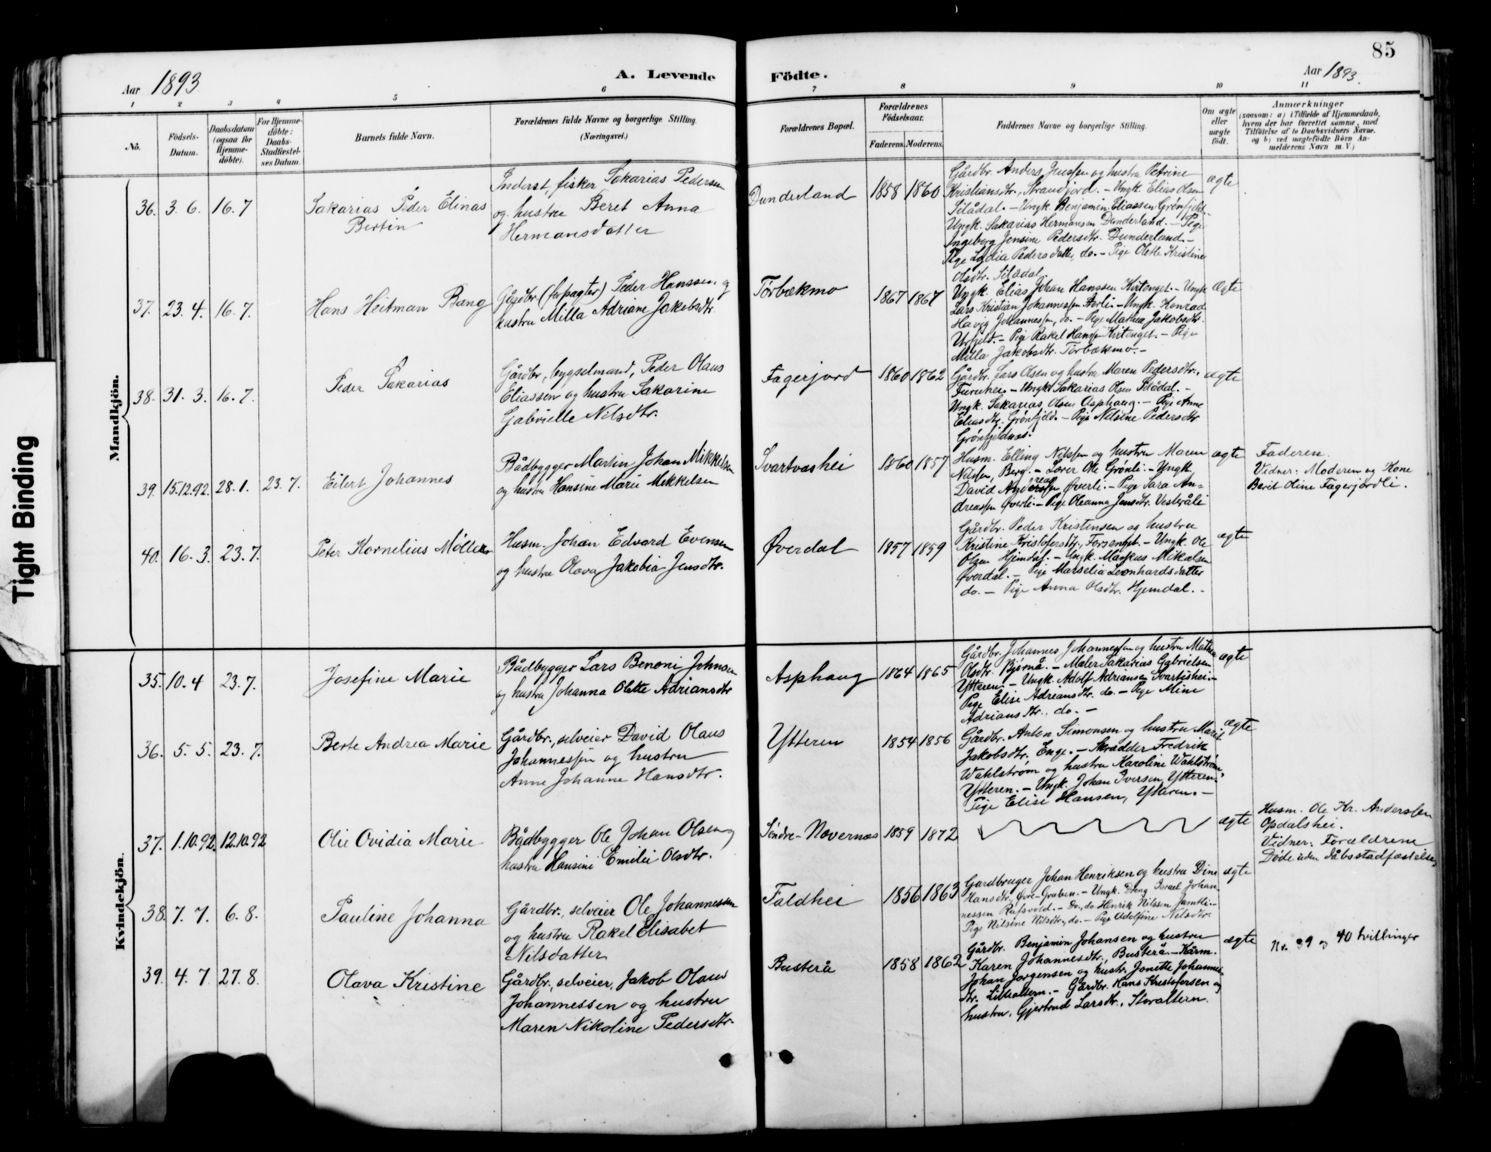 85
Aar 1893
A. Levende Födte.
Aar 1893.
1 2 3 4 5 6 7 8 9 10 11
No.
Födsels-Datum.
Daabsdatum (ogsaa for Hjemmedøbte).
For Hjemmedöbte: Daabs-Stadfæstelses Datum.
Barnets fulde Navn.
Forældrenes fulde Navne og borgerlige Stilling. (Næringsvei.)
Forældrenes Bopæl.
Forældrenes Födselsaar.
Faderens. Moderens.
Faddernes Navne og borgerlige Stilling.
Om ægte eller uægte födt.
Anmærkninger
(saasom: a) i Tilfælde af Hjemmedaab, hvem der har forrettet samme, med Tilföielse af to Daabsvidners Navne, og b) ved uægtefödte Börn Anmelderens Navn m. V.)
Tight Binding
Mandkjön.
36. 3. 6. 16. 7
Sakarias Peder Elinas
Bertin
Inderst, fisker Sakarias Pedersen
og hustru Beret Anna
Hermansdatter
Dunderland
1858 1860
Gårdbr. Anders Jenssen og hustru Petrine
Kristiansdtr. Strandjord. - Ungk. Elias Olsen
Stådal. - Ungk. Benjamin Eliassen Grønfjeld.
Ungk. Sakarias Hermansen Dunderland. - Pige
Ingeborg Jensine Pedersdtr. Dunderland. -
Pige Lydia Pedersdatter, do. - Pige Olette Kristine
Olsdtr. Stådal.
ægte
37. 23. 4. 16. 7.
Hans Heitman Bang
Gårdbr. (forpagter) Peder Hanssen og
hustru Milla Adriane Jakobsdtr
Torbækmo
1867 1867
Ungk. Elias Johan Hanssen Kvitenget. - Ungk
Lars Kristian Johannessen Avli - Ungk. Konrad
Johannessen, do. - Pige Mathea Jakobsdtr.
- Pige Rakel Hansen Kvitenget. - Pige
Milla Jakobsdtr. Torbækmo. -
ægte
38. 31. 3. 16. 7.
Peder Sakarias
Gårdbr., bygselmand, Peder Olaus
Eliassen og hustru Sakarine
Gabrielle Nilsdtr.
Fagerjord
1860 1862
Gårdbr. Lars Olsen og hustru Maren Pedersdtr.
- Ungk Sakarias Olsen Stådal. -
Ungk. Sakarias Olsen Asphaug. - Pige Anne
Eliasdtr. Grønfjeld. - Pige Nilsine Pedersdtr
ægte
39. 15.12.92. 28. 1. 23. 7.
Eilert Johannes
Bådbygger Martin Johan Mikkelsen
og hustru Hansine Marie Mikkelsen
Svartvashei
1860 1857
Husm. Elling Nilssen og hustru Maren
Nilsen, Berg. - Lærer Ole Grønli - Ungk
David Andreassen Øverli - Pige Sara An-
drenssen Øverli - Pige Oleanna Jensdtr. Vesteråli
ægte
Faderen.
Vidner: Moderen og Kone
Berit Oline Fagerjordli.
40. 16. 3. 23. 7.
Peter Kornelius Möller
Husm. Johan Edvard Evensen
og hustru Olava Jakobia Jensdtr.
Øverdal
1857 1859
Gårdbr. Peder Kristensen og hustru
Kristine Kristofersdtr, - Ungk. Ole
Olsen Hjemdal. - Ungk. Markus Mikalsen
Øverdal. - Pige Marselia Leonhardsdatter
do. - Pige Anna Olsdtr. Hjemdal. -
ægte
Kvindekjön.
35. 10. 4 23. 7.
Josefine Marie
Bådbygger Lars Benoni Johnsen
og hustru Johanna Olette Adriansdtr
Asphaug
1864 1865
Gårdbr. Johannes Johannessen og hustru
Olsdtr. Bjørnå. - Maler Sakarias Gabrielsen
Ytteren. - Ungk. Adolf Adriansen Svartishei -
Pige Elise Adriansdtr. do - Pige Mine
Adriansdtr. do. -
ægte
36. 5. 5. 23. 7.
Berte Andrea Marie
Gårdbr., selveier David Olaus
Johannessen og hustru
Anne Johanne Hansdtr.
Ytteren
1854 1856
Gårdbr. Anton Simonsen og hustru Marit
Jakobsdtr, Enge. - Skrædder Fredrik
Wahlstrøm og hustru Karoline Wahlstrøm,
Ytteren. - Ungk. Johan Iversen, Ytteren.
Pige Elise Hansen, Ytteren. -
ægte
37. 1.10.92. 12.10.92
Olie Ovidia Marie
Bådbygger Ole Johan Olsen og
hustru Hansine Emilie Olsdtr.
Søndre-Novernes
1859 1872
ægte
Husm. Ole Kr. Anderssen
Opdalshei.
Vidner: Forældrene
Døde uden dåbsstadfæstelse
38. 7. 7. 6. 8.
Pauline Johanna
Gårdbr., selveier Ole Johannessen
og hustru Rakel Elisabet
Nilsdatter
Faldhei
1856 1863
Gardbruger Johan Henriksen og hustru Dine
Hansdtr, Øvre-Graben. - Ungk. Dreng Israel Johan-
nessen - Do, do Henrik Nilsen,
Pige Nilsine Nilsdtr, do - Pige Adolfine Nilsdtr
ægte
39. 4. 7 27. 8.
Olava Kristine
Gårdbr., selveier, Jakob Olaus
Johannessen og hustru
Maren Nikoline Pedersdtr.
Busterå
1858 1862
Gårdbr. Benjamin Johansen og hustru
Karen Johannesdtr, Busterå - Husm.
Johan Jørgensen og hustr. Jonette Johannes-
dtr. - Gårdbr. Hans Kristofersen og
hustru, Gjertrud Larsdtr,
ægte
No. 39 og 40 tvillinger